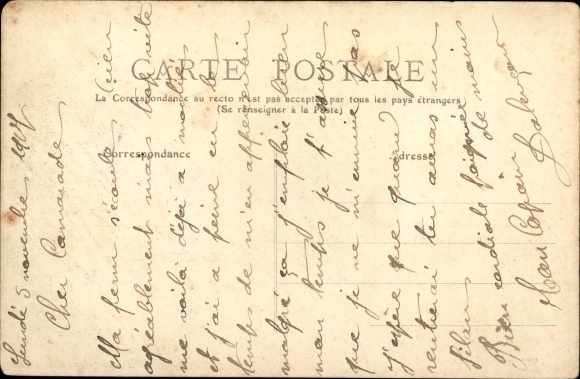 CARTE POSTALE
La Correspondance au recto n'est pas acceptée par tous les pays étrangers
(Se renseigner à la Poste)
Correspondance
Adresse
Lundi 5 novembre
Cher Camarade
Ma perm s'écoule bien
agréablement mais trop vite
me voilà déjà à moitié
et j'ai à peine eu le
temps de m'en apercevoir
malgré ça j'emploie bien
mon temps je t'assure
que je ne m'ennuie pas
J'espère que quand je
rentrerai tu auras un
filon
Bien cordiale poignée de mains